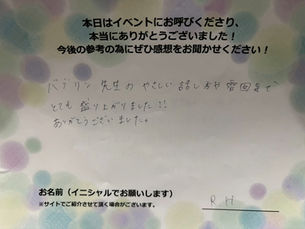 本日はイベントにお呼びくださり、
本当にありがとうございました!
今後の参考の為にぜひ感想をお聞かせください!
先生の やさしい 話し方や雰囲気で
とても 盛り上がりました!!
ありがとうございました。
お名前(イニシャルでお願いします)
※サイトでご紹介させて頂く場合がございます。
R H